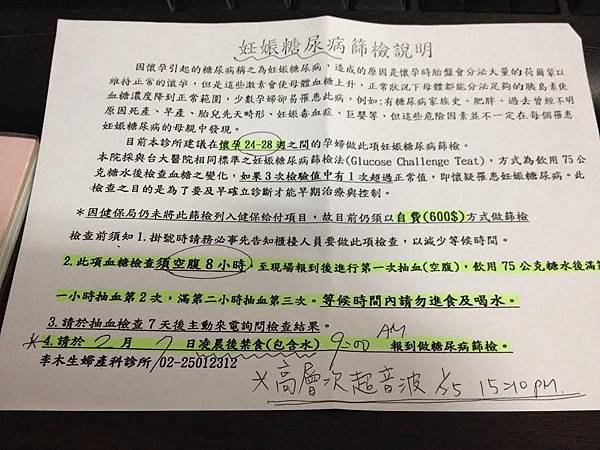 妊娠糖尿病篩檢說明
因懷孕引起的糖尿病稱之為妊娠糖尿病,造成的原因是懷孕時胎盤會分泌大量的荷爾蒙以
維持正常的懷孕,但是這些激素會使母體血糖上升,正常狀況下母體都能分泌足夠的胰島素使
血糖濃度降到正常範圍,少數孕婦卻易罹患此病,例如:有糖尿病家族史、肥胖、過去曾經不明
原因死產、早產、胎兒先天畸形、妊娠毒血症、巨嬰等,但這些危險因素並不一定在每個罹患
妊娠糖尿病的母親中發現。
目前本診所建議在懷孕24-28週之間的孕婦做此項妊娠糖尿病篩檢。
本院採與台大醫院相同標準之妊娠糖尿病篩檢法(Glucose Challenge Teat),方式為飲用75公
克糖水後檢查血糖之變化,如果3次檢驗值中有1次超過正常值,即懷疑罹患妊娠糖尿病。此
檢查之目的是為了要及早確立診斷才能早期治療與控制。
*因健保局仍未將此篩檢列入健保給付項目,故目前仍須以自費(600$)方式做篩檢
檢查前須知1.掛號時請務必事先告知櫃檯人員要做此項檢查,以減少等候時間。
2.此項血糖檢查須空腹8小時,至現場報到後進行第一次抽血(空腹),飲用75公克糖水後滿第
一小時抽血第2次,滿第二小時抽血第三次。等候時間內請勿進食及喝水。
3.請於抽血檢查7天後主動來電詢問檢查結果。
*4.請於2月7日凌晨後禁食(包含水)9:00 AM報到做糖尿病篩檢。
李木生婦產科診所/02-25012312
*高層次超音波 15:10 PM.